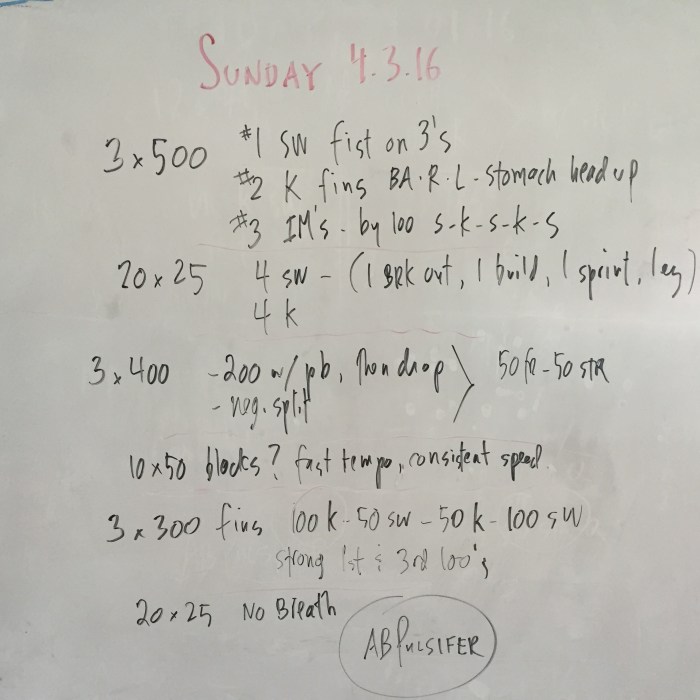 SUNDAY 4.3.16
3x500 #1 SW fist on 3's
#2 K fins BA.R.L-stomach head up
#3 IM's - by 100 s-k-s-k-s
20x25 4 sw - (1 BRK out, 1 build, 1 sprint, 1 ez)
4 k
3x400 -200 w/ pb, then drop > 50 fr - 50 STR
- neg. split
10x50 blocks? fast tempo, consistent speed.
3x300 fins 100k-50sw-50k-100sw
strong 1st & 3rd 100's
20x25 No Breath
ABPULSIFER